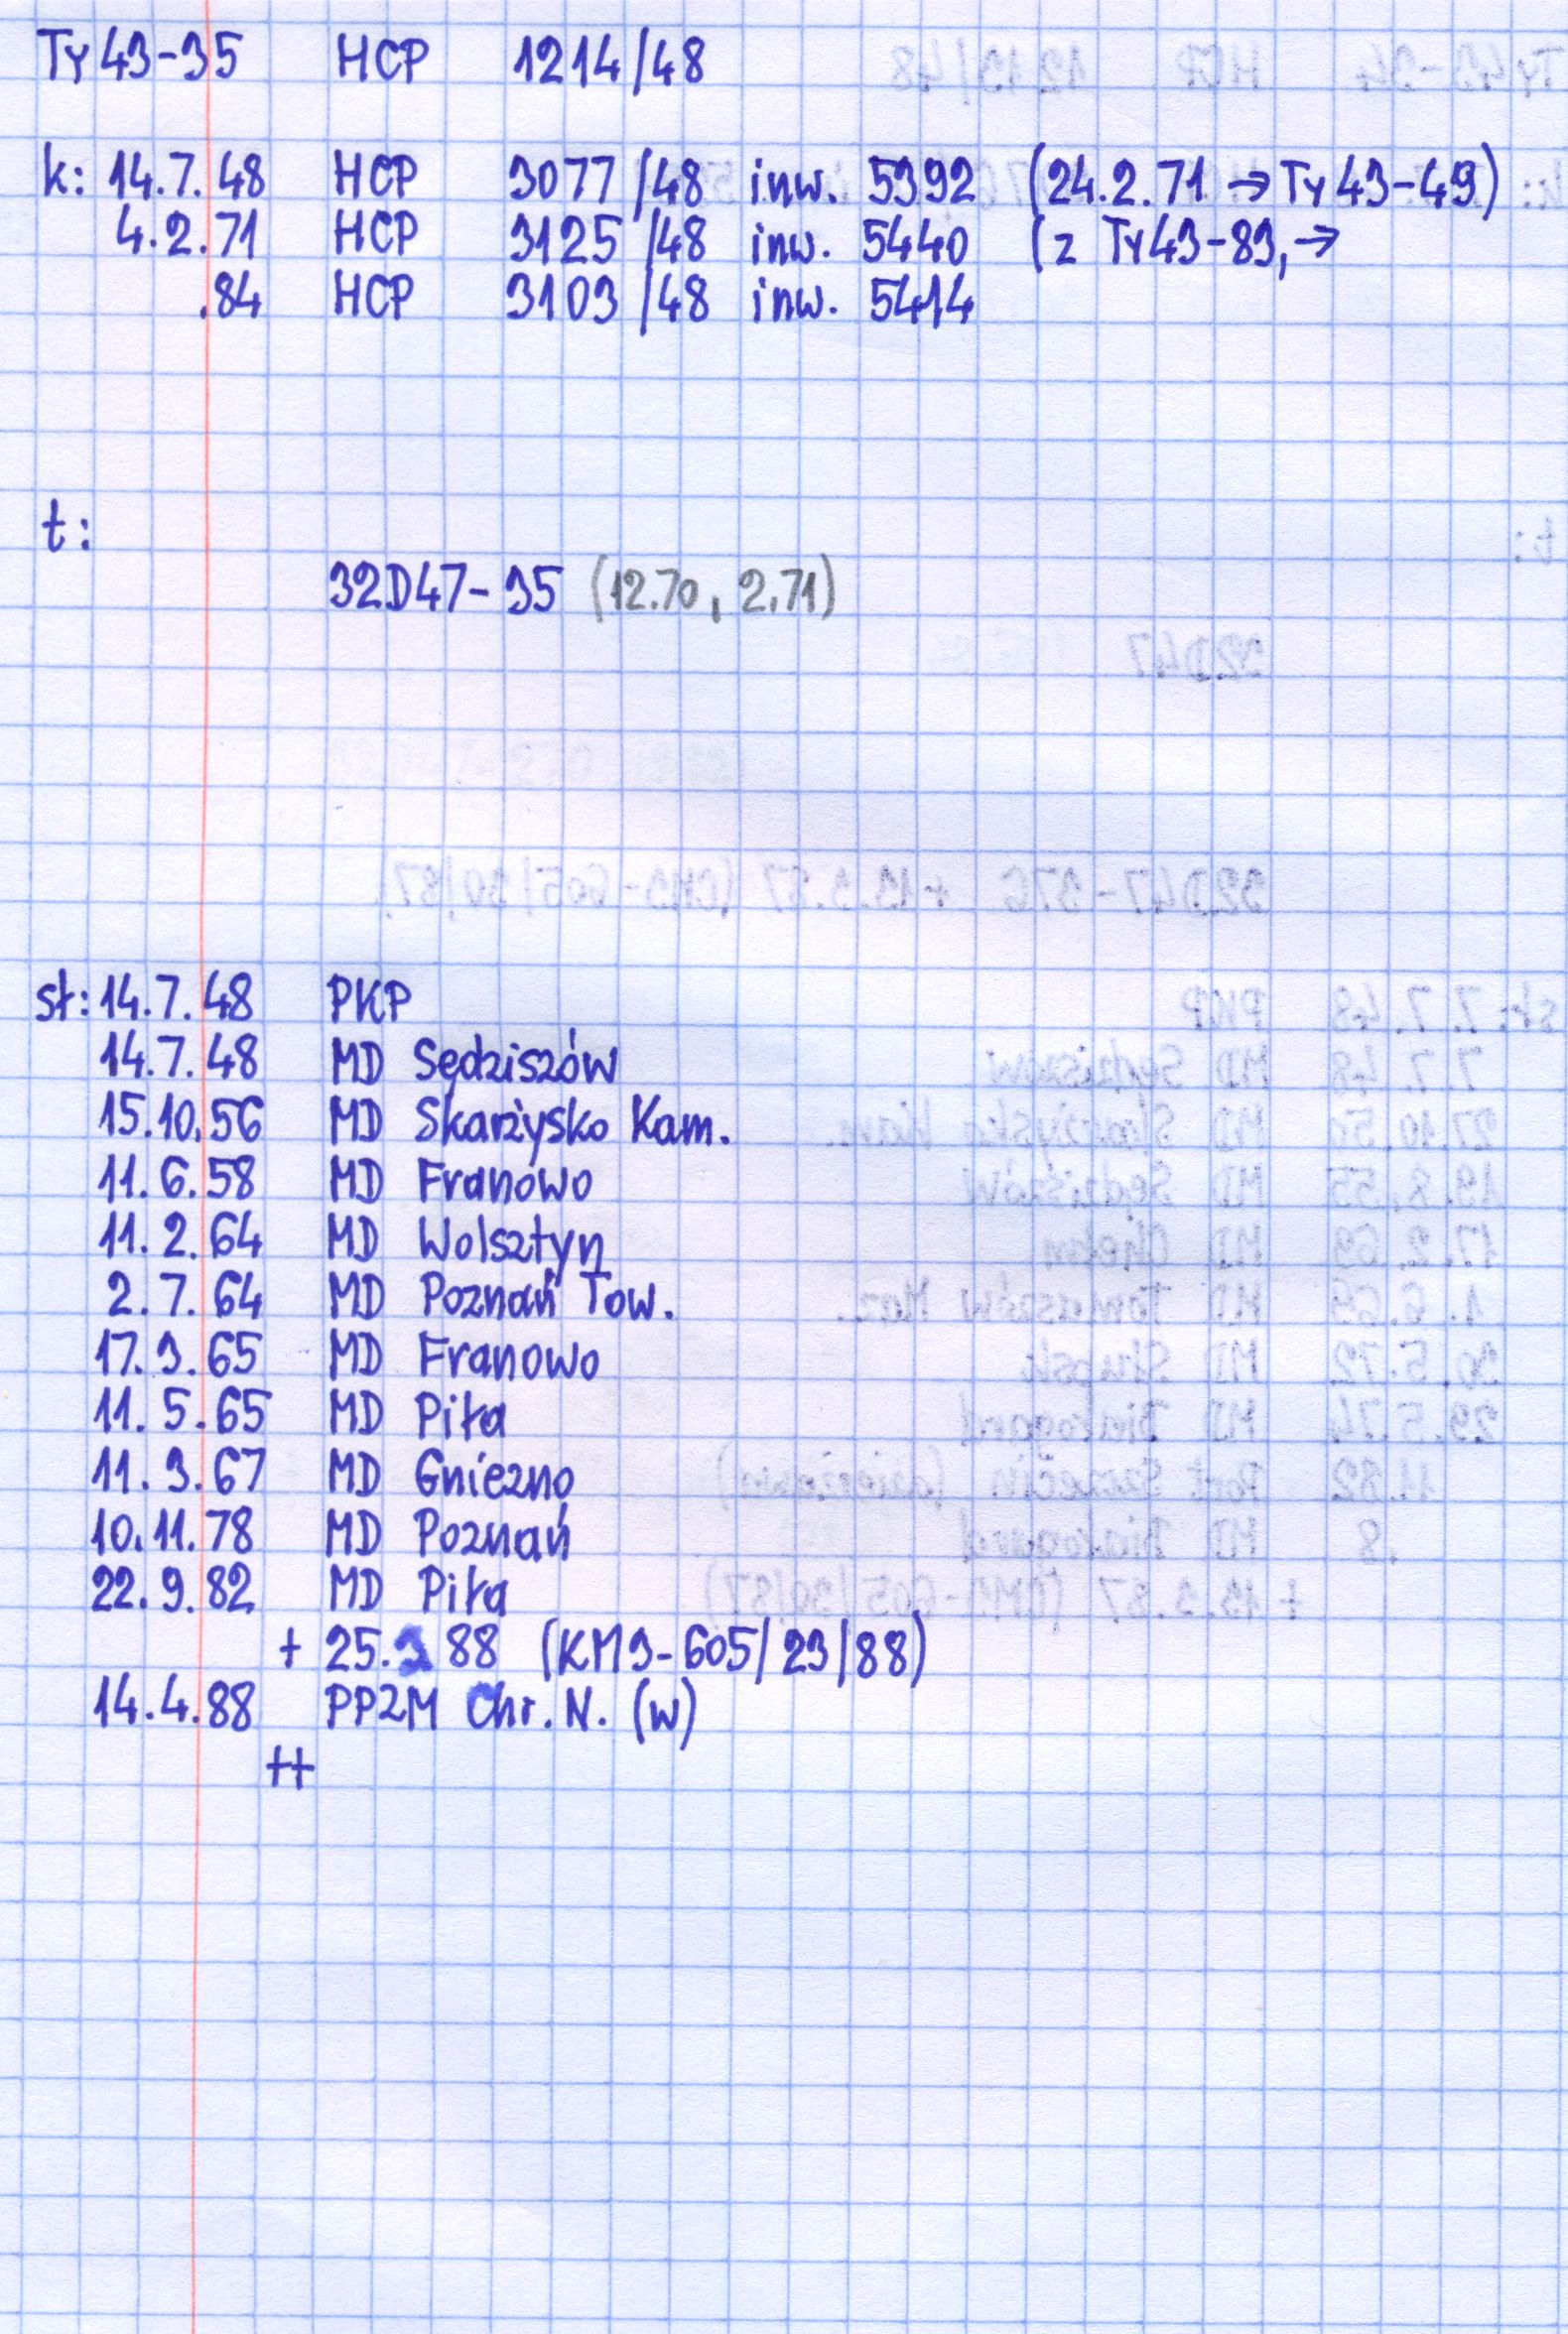 Ty43-35 HCP 1214/48
k: 14.7.48 HCP 3077/48 inw. 5392 (24.2.71 → Ty43-49)
4.2.71 HCP 3125/48 inw. 5440 (z Ty43-83, →
.84 HCP 3103/48 inw. 5414
t:
32D47-35 (12.70, 2.71)
sł: 14.7.48 PKP
14.7.48 MD Sędziszów
15.10.56 MD Skarżysko Kam.
11.6.58 MD Franowo
11.2.64 MD Wolsztyn
2.7.64 MD Poznań Tow.
17.3.65 MD Franowo
11.5.65 MD Piła
11.3.67 MD Gniezno
10.11.78 MD Poznań
22.9.82 MD Piła
+ 25.3 88 (KM3-605/23/88)
14.4.88 PPZM Chr. N. (w)
++